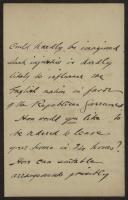 Could hardly be imagined
such injustice is hardly
likely to influence the
English nation in favor
of the Republican Government
How would you like to
be ordered to leave
your home in 24 hours?
How can suitable
arrangements possibly